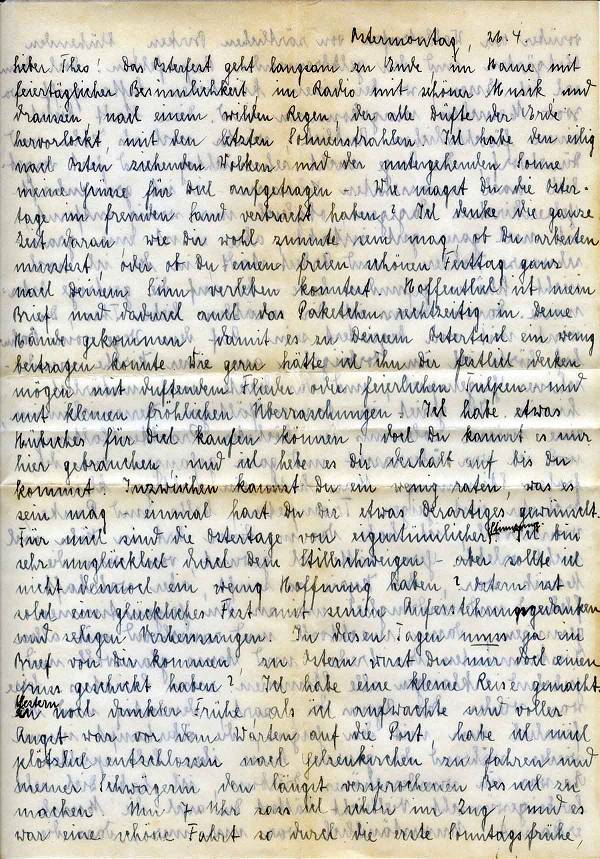 Ostermontag, 26.4.
Lieber Theo! Das Osterfest geht langsam zu Ende, im Hause mit
feiertäglicher Besinnlichkeit im Radio mit schöner Musik und
draussen, nach einem wilden Regen der alle Düfte der Erde
hervorlockt, mit den letzten Sonnenstrahlen. Ich habe den eilig
nach Osten ziehenden Wolken und der untergehenden Sonne
meine Grüsse für Dich aufgetragen - Wie magst Du die Oster-
tage im fremden Land verbracht haben? Ich denke die ganze
Zeit daran, wie Dir wohl zumute sein mag, ob Du arbeiten
musstest, oder ob Du einen freien schönen Festtag ganz
nach Deinem Sinn verleben konntest. Hoffentlich ist mein
Brief und dadurch auch das Paketchen rechtzeitig in Deine
Hände gekommen damit es zu Deinem Ostertisch ein wenig
beitragen konnte. Wie gern hätte ich ihn Dir festlich decken
mögen mit duftendem Flieder oder feierlichen Tulpen und
mit kleinen fröhlichen Überraschungen. Ich habe etwas
Hübsches für Dich kaufen können - doch Du kannst es nur
hier gebrauchen und ich hebe es Dir deshalb auf bis Du
kommst. Inzwischen kannst Du ein wenig raten, was es
sein mag - einmal hast Du Dir etwas Derartiges gewünscht.
Für mich sind die Ostertage von eigentümlicher Stimmung Ich bin
sehr unglücklich durch Dein Stillschweigen - aber sollte ich
nicht dennoch ein wenig Hoffnung haben? Ostern ist
solch ein glückliches Fest mit seinen Auferstehungsgedanken
und seligen Verheissungen. In diesen Tagen muss ja ein
Brief von Dir kommen, zu Ostern wirst Du mir doch einen
Gruss geschickt haben? Ich habe eine kleine Reise gemacht.
Gestern in noch dunkler Frühe als ich aufwachte und voller
Angst war vor dem Warten auf die Post, habe ich mich
plötzlich entschlossen nach Gelsenkirchen zu fahren und
meiner Schwägerin den längst versprochenen Besuch zu
machen. Um 7 Uhr sass ich schon im Zug, und es
war eine schöne Fahrt so durch die erste Sonntagsfrühe,